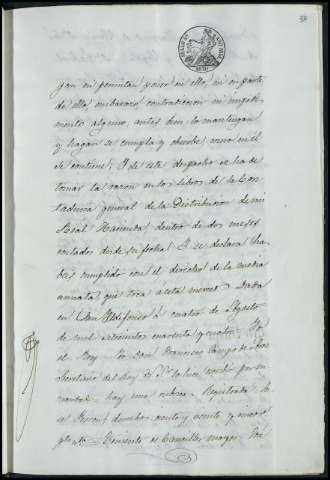 gan ni permitan poner en ello, ni en parte
de ello, embarazo contradicion ni impedi-
mento alguno, antes bien lo mantengan
y hagan se cumpla y observe, como en el
se contiene; Y de este despacho se ha de
tomar la razon en los libros de la Con-
taduria general de la Distribucion de mi
Real Hacienda dentro de dos meses
contados desde su fecha: Y se declara ha-
beis cumplido con el derecho de la media
annata, que toca a esta merced. Dada
en San Ildefonso à cuatro de Agosto
de mil setecientos cuarenta y cuatro. Yo
el Rey Yo Don Francisco
Secretario del Rey
mandado hay una rubrica Registrada
derechos veinte y
Teniente de Canciller mayor